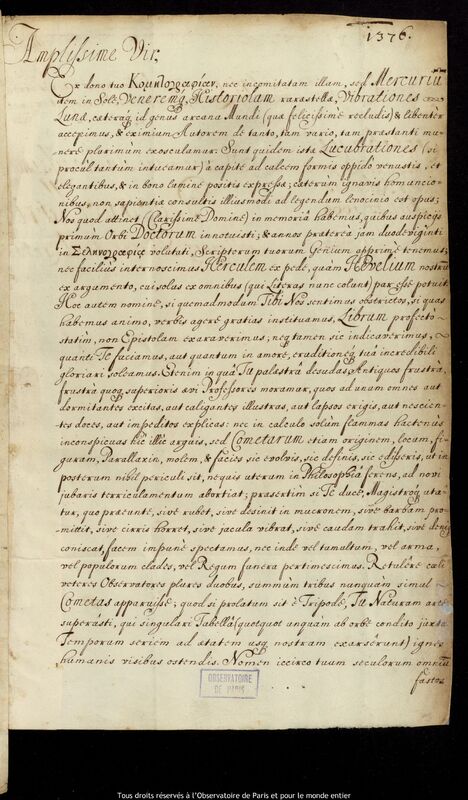 1376.
Amplissime Vir,
Ex dono tuo Κομητογραφίαν; nec incomitatam illam, sed Mercuriũ
item in Sole, Veneremq́, Historiolam rarastellæ, Vibrationes
Lunæ, cæteraq́ id genus arcana Mundi (quæ felicissimè recludis) & libentèr
accepimus, & eximium Autorem de tanto, tam vario, tam præstanti mu-
nere plurimùm exosculamur. Sunt quidem istæ Lucubrationes (si
procùl tantùm intucamur) à capite ad calcem formis oppidò venustis, et
elegantibus, & in bono lumine positis expressæ; cæterùm ignavis homuncio-
nibus, non sapientiæ consultis illiusmodi ad legendum lenocinio est opus;
Nos quod attinet (Clarissime Domine) in memoriâ habemus, quibus auspicijs
primùm Orbi Doctorum innotuisti; & annos præterea jàm duodeviginti
in Σεληνογραφίᾳ volutati, Scriptorum tuorum Genium opprimè tenemus;
nec faciliùs internoscimus Herculem ex pede, quàm Hevelium nostrũ
ex argumento, cui solus ex omnibus (qui Literas nunc colunt) par esse potuit.
Hoc autem nomine, si quemadmodum Tibi Nos sentimus obstrictos, si quas
habemus animo, verbis agere gratias instituamus, Librum profectò
statim, non Epistolam exaraverimus; neq́ tamen sic indicaverimus,
quanti Te faciamus, aut quantum in amore, eruditioneq́ tuâ incredibili
gloriari soleamus. Etenim in quâ Tu palæstrâ desudas, Antiquos frustrà,
frustrà quoq́ superioris ævi Professores moramur, quos ad unum omnes aut
dormitantes excitas, aut caligantes illustras, aut lapsos erigis, aut nescien-
tes doces, aut impeditos explicas: nec in calculo solùm flammas hactenus
inconspicuas hic illic arguis, sed Cometarum etiam originem, locum, fi-
guram, Parallaxin, molem, & facies sic evolvis, sic definis, sic edisseris, ut in
posterum nihil periculi sit, nequis uterum in Philosophiâ ferens, ad novi
jubaris terriculamentum abortiat; præsertim si Te duce, Magistroq́ uta-
tur, quo præeunte, sive rubet, sive desinit in mucronem, sive barbam pro-
mittit, sive cirris horret, sive jacula vibrat, sive caudam trahit, sive deniq́
coniscat, facem impunè spectamus, nec inde vel tumultum, vel arma,
vel populorum clades, vel Regum funera pertimescimus. Retulêre cæli
veteres Observatores plures duobus, summùm tribus nunquàm simul
Cometas apparuisse; quod si prolatum sit è Tripode, Tu Naturam arte
superâsti, qui singulari Tabellâ (quotquot unquàm ab orbe condito juxta
Temporum seriem ad ætatem usq́ nostram exarsêrunt) ignes
humanis visibus ostendis. Nomen iccirco tuum seculorum omniũ
fastos
OBSERVATOIRE
DE PARIS
Tous droits réservés à l'Observatoire de Paris et pour le monde entier